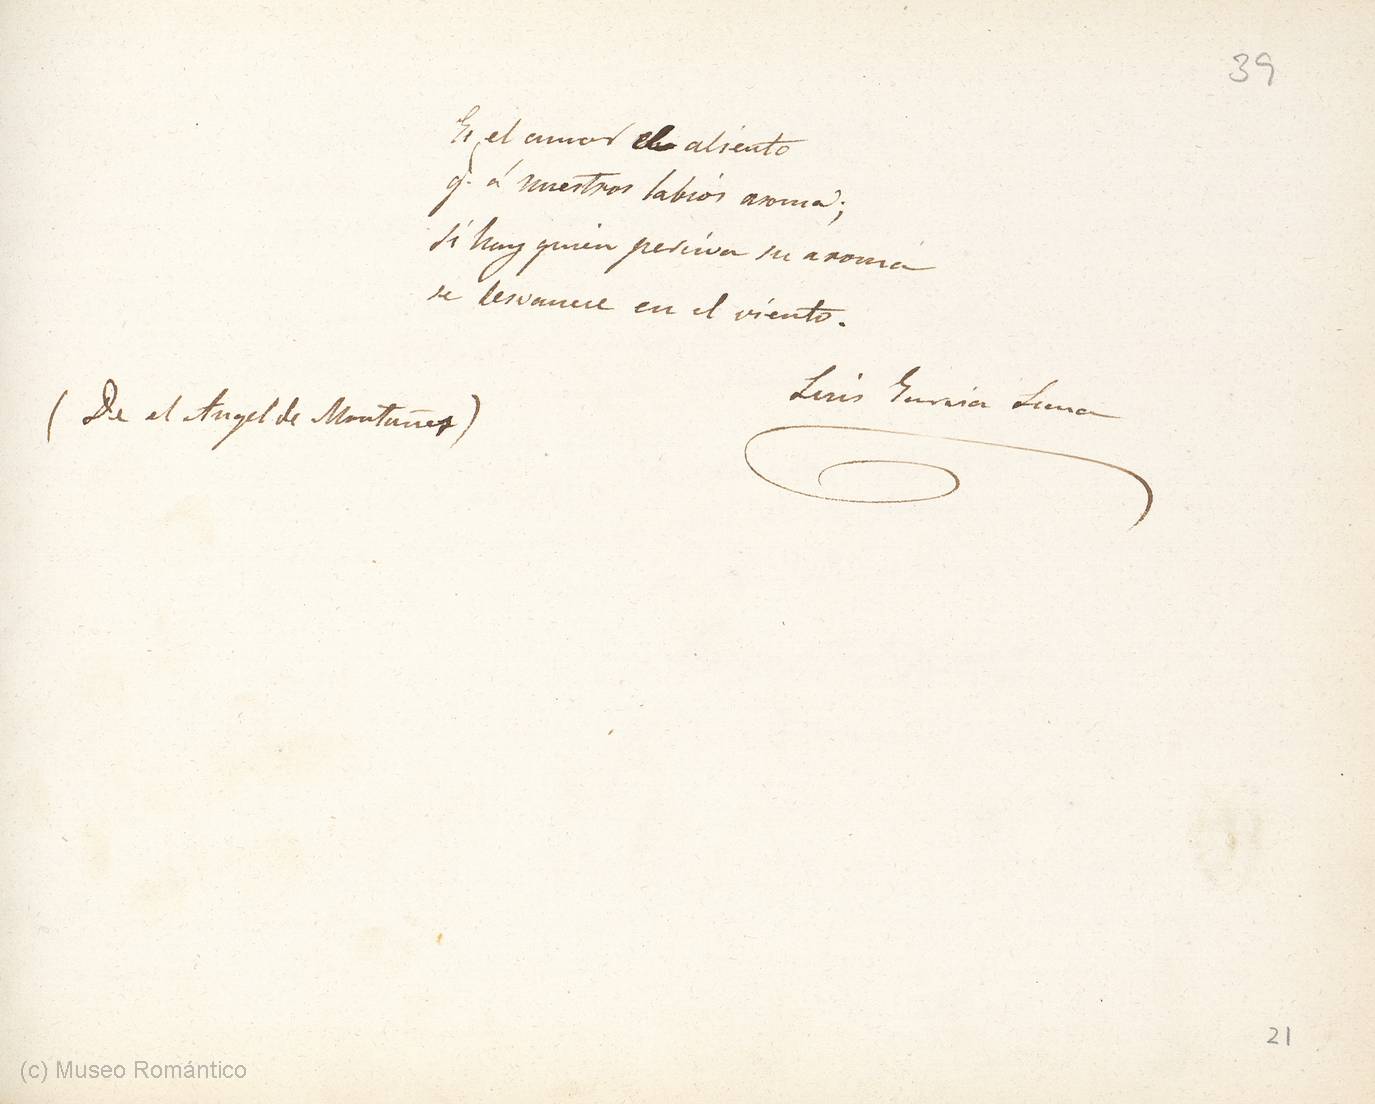 39
Es el amor el aliento
q. á nuestros labios asoma;
si hay quien perciva su aroma
se desvanece en el viento.
Luis García Luna
(De el Angel de Montañes)
21
(c) Museo Romántico